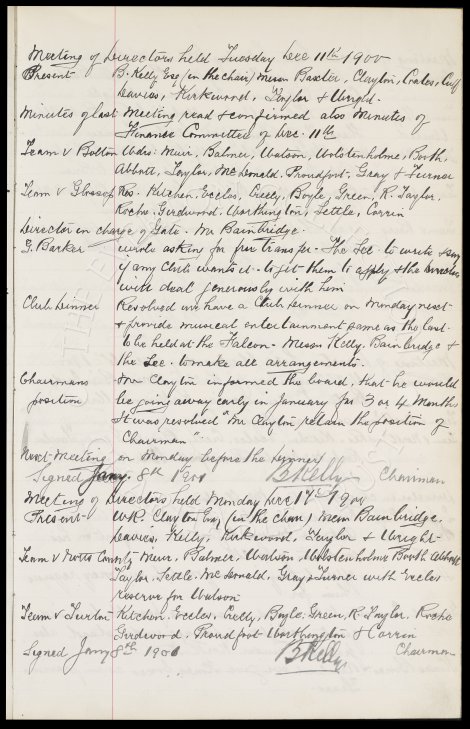 Meeting of Directors held Tuesday Dec 11th 1900
Present B. Kelly Esq (in the chair) Messrs Baxter, Clayton, Coates, Cuff
Davies, Kirkwood, Taylor & Wright.
Minutes of last Meeting read & confirmed also Minutes of
Finance Committee of Dec. 11th
Team v Bolton Wdrs: Muir, Balmer, Watson, Wolstenholme, Booth,
Abbott, Taylor, McDonald, Proudfoot, Gray & Turner
Team v Glossop Res. Kitchen, Eccles, Crelly, Boyle, Green, R. Taylor,
Roche, Girdwood, Worthington, Settle, Corrin
Director in charge of Gate. Mr Bainbridge.
G. Barker wrote asking for free transfer. The Sec. to write & say
if any Club wants it to get them to apply & the Directors
will deal generously with him
Club Dinner Resolved we have a Club Dinner on Monday next
& provide musical entertainment same as the last.
to be held at the Falcon. Messrs Kelly, Bainbridge &
the Sec. to make all arrangements.
Chairmans Mr Clayton informed the board, that he would
position be going away early in January for 3 or 4 Months
It was resolved "Mr Clayton retain the position of
Chairman"
Next Meeting on Monday before the Dinner
Signed Jany. 8th 1901 B Kelly Chairman
Meeting of Directors held Monday Dec 17th 1900
Present W.R. Clayton Esq (in the chair) Messrs Bainbridge,
Davies, Kelly, Kirkwood, Taylor & Wright
Team v Notts County Muir, Balmer, Watson, Wolstenholme Booth Abbott
Taylor, Settle, McDonald, Gray & Turner with Eccles
reserve for Watson
Team v Turton Kitchen, Eccles, Crelly, Boyle, Green, R. Taylor, Roche
Girdwood, Proudfoot Worthington & Corrin
Signed Jany 8th 1901 B Kelly Chairman